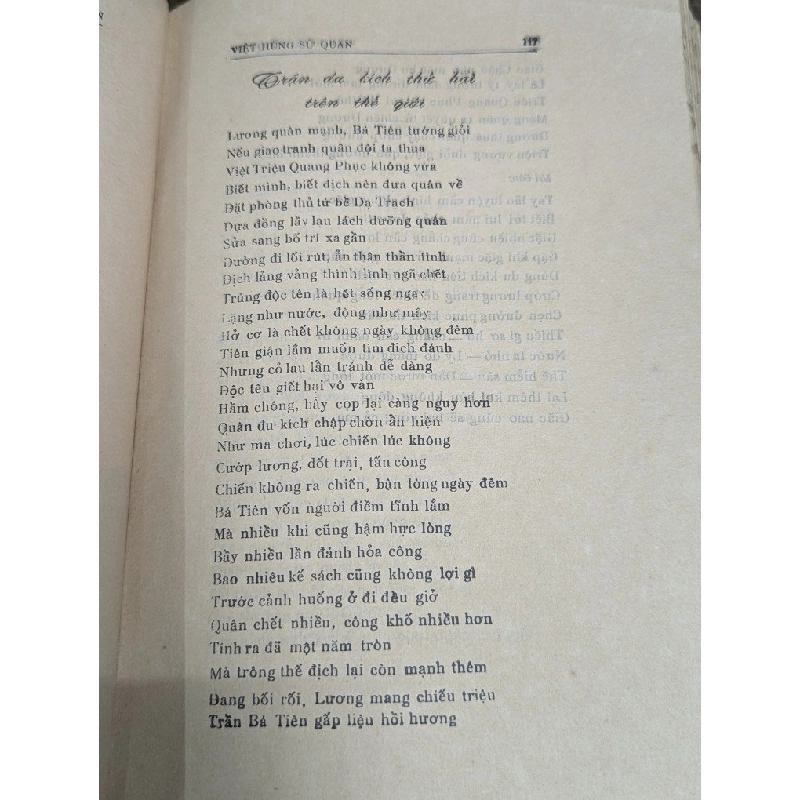 VIỆT HÙNG SỬ QUAN 117
Trận du kích thứ hai
trên thế giới
Lương quân mạnh, Bá Tiên tướng giỏi
Nếu giao tranh quân đội ta thua
Việt Triệu Quang Phục không vừa
Biết mình, biết địch nên đưa quân về
Đặt phòng thủ tứ bề Dạ Trạch
Dựa đồng lầy lau lách dưỡng quân
Sửa sang bố trí xa gần
Đường đi lối rút, ẩn thân thần tình
Địch lảng vảng thình lình ngã chết
Trúng độc tên là hết sống ngay
Lặng như nước, động như mây
Hở cơ là chết không ngày không đêm
Tiên giận lắm muốn tìm địch đánh
Nhưng cỏ lau lẩn tránh dễ dàng
Độc tên giết hại vô vàn
Hầm chông, bẫy cọp lại càng nguy hơn
Quân du kích chập chờn ẩn hiện
Như ma chơi, lúc chiến lúc không
Cướp lương, đốt trại, tấn công
Chiến không ra chiến, bận lòng ngày đêm
Bá Tiên vốn người điềm tĩnh lắm
Mà nhiều khi cũng hậm hực lòng
Bầy nhiều lần đánh hỏa công
Bao nhiêu kế sách cũng không lợi gì
Trước cảnh huống ở đi đều giở
Quân chết nhiều, công khố nhiều hơn
Tính ra đã một năm tròn
Mà trông thế địch lại còn mạnh thêm
Đang bối rối, Lương mang chiếu triệu
Trần Bá Tiên gấp liệu hồi hương